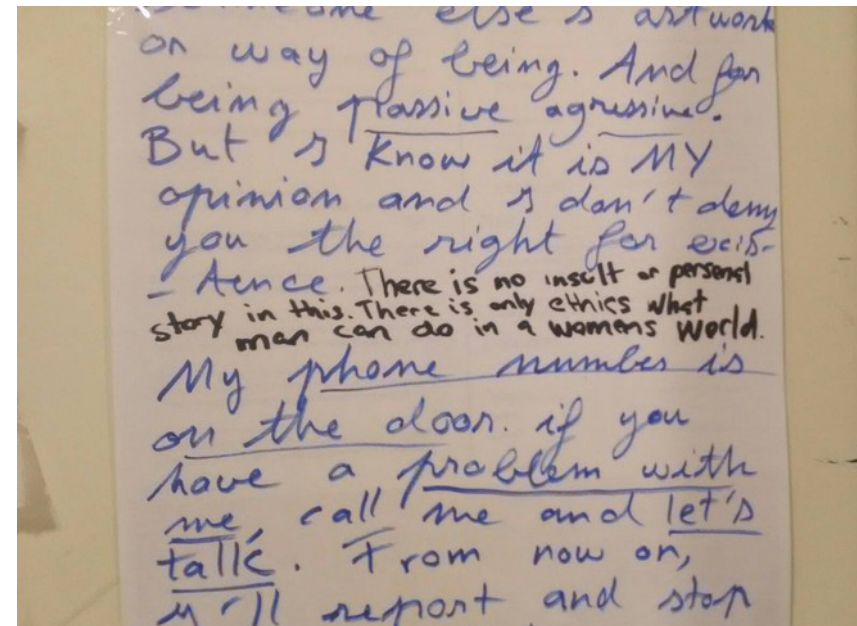 someone else's artwork
or way of being. And for
being passive agressive.
But I know it is MY
opinion and I don't deny
you the right for exis-
- tence. There is no insult or personal
story in this. There is only ethics what
man can do in a womens world.
My phone number is
on the door. if you
have a problem with
me, call me and let's
talk. From now on,
I'll report and stop